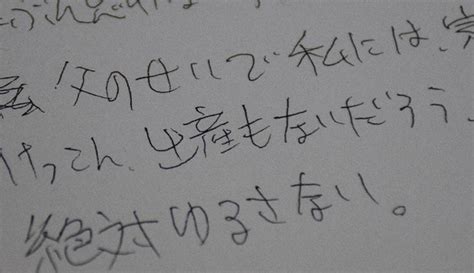 父のせいで私には、
けっこん、出産もないだろう、
絶対ゆるさない。